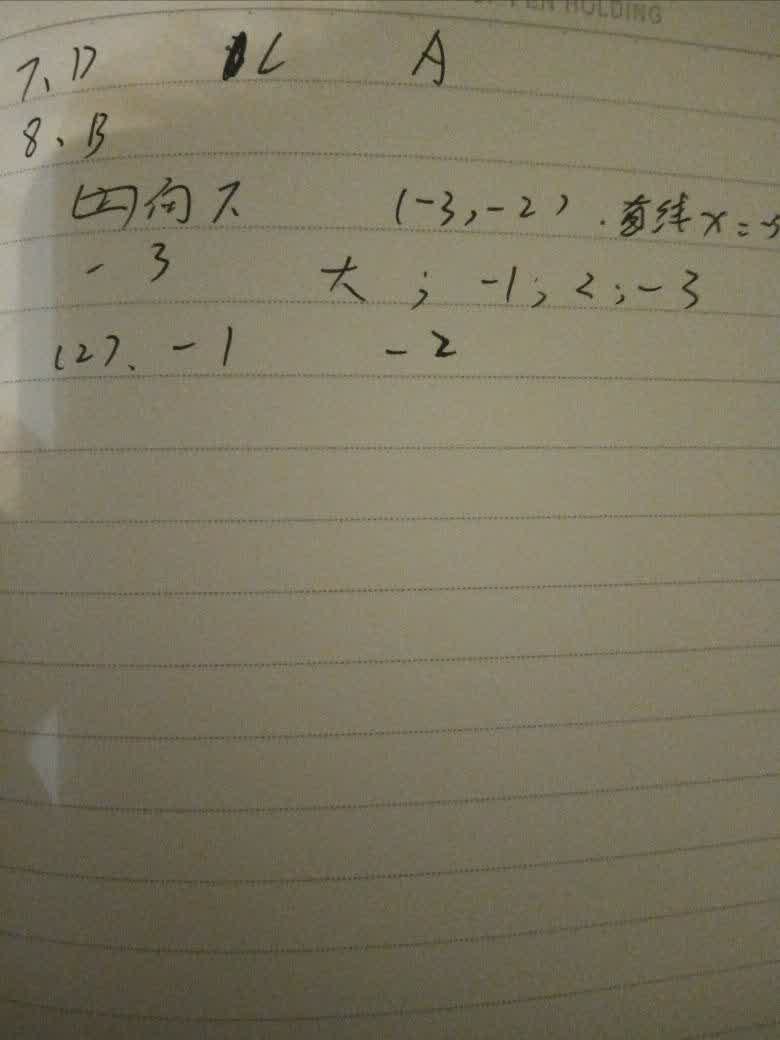 PEN HOLDING
7、D C A
8、B
(四)向下 (-3,-2). 直线x=-3
-3 大; -1; 2; -3
(2)、-1 -2